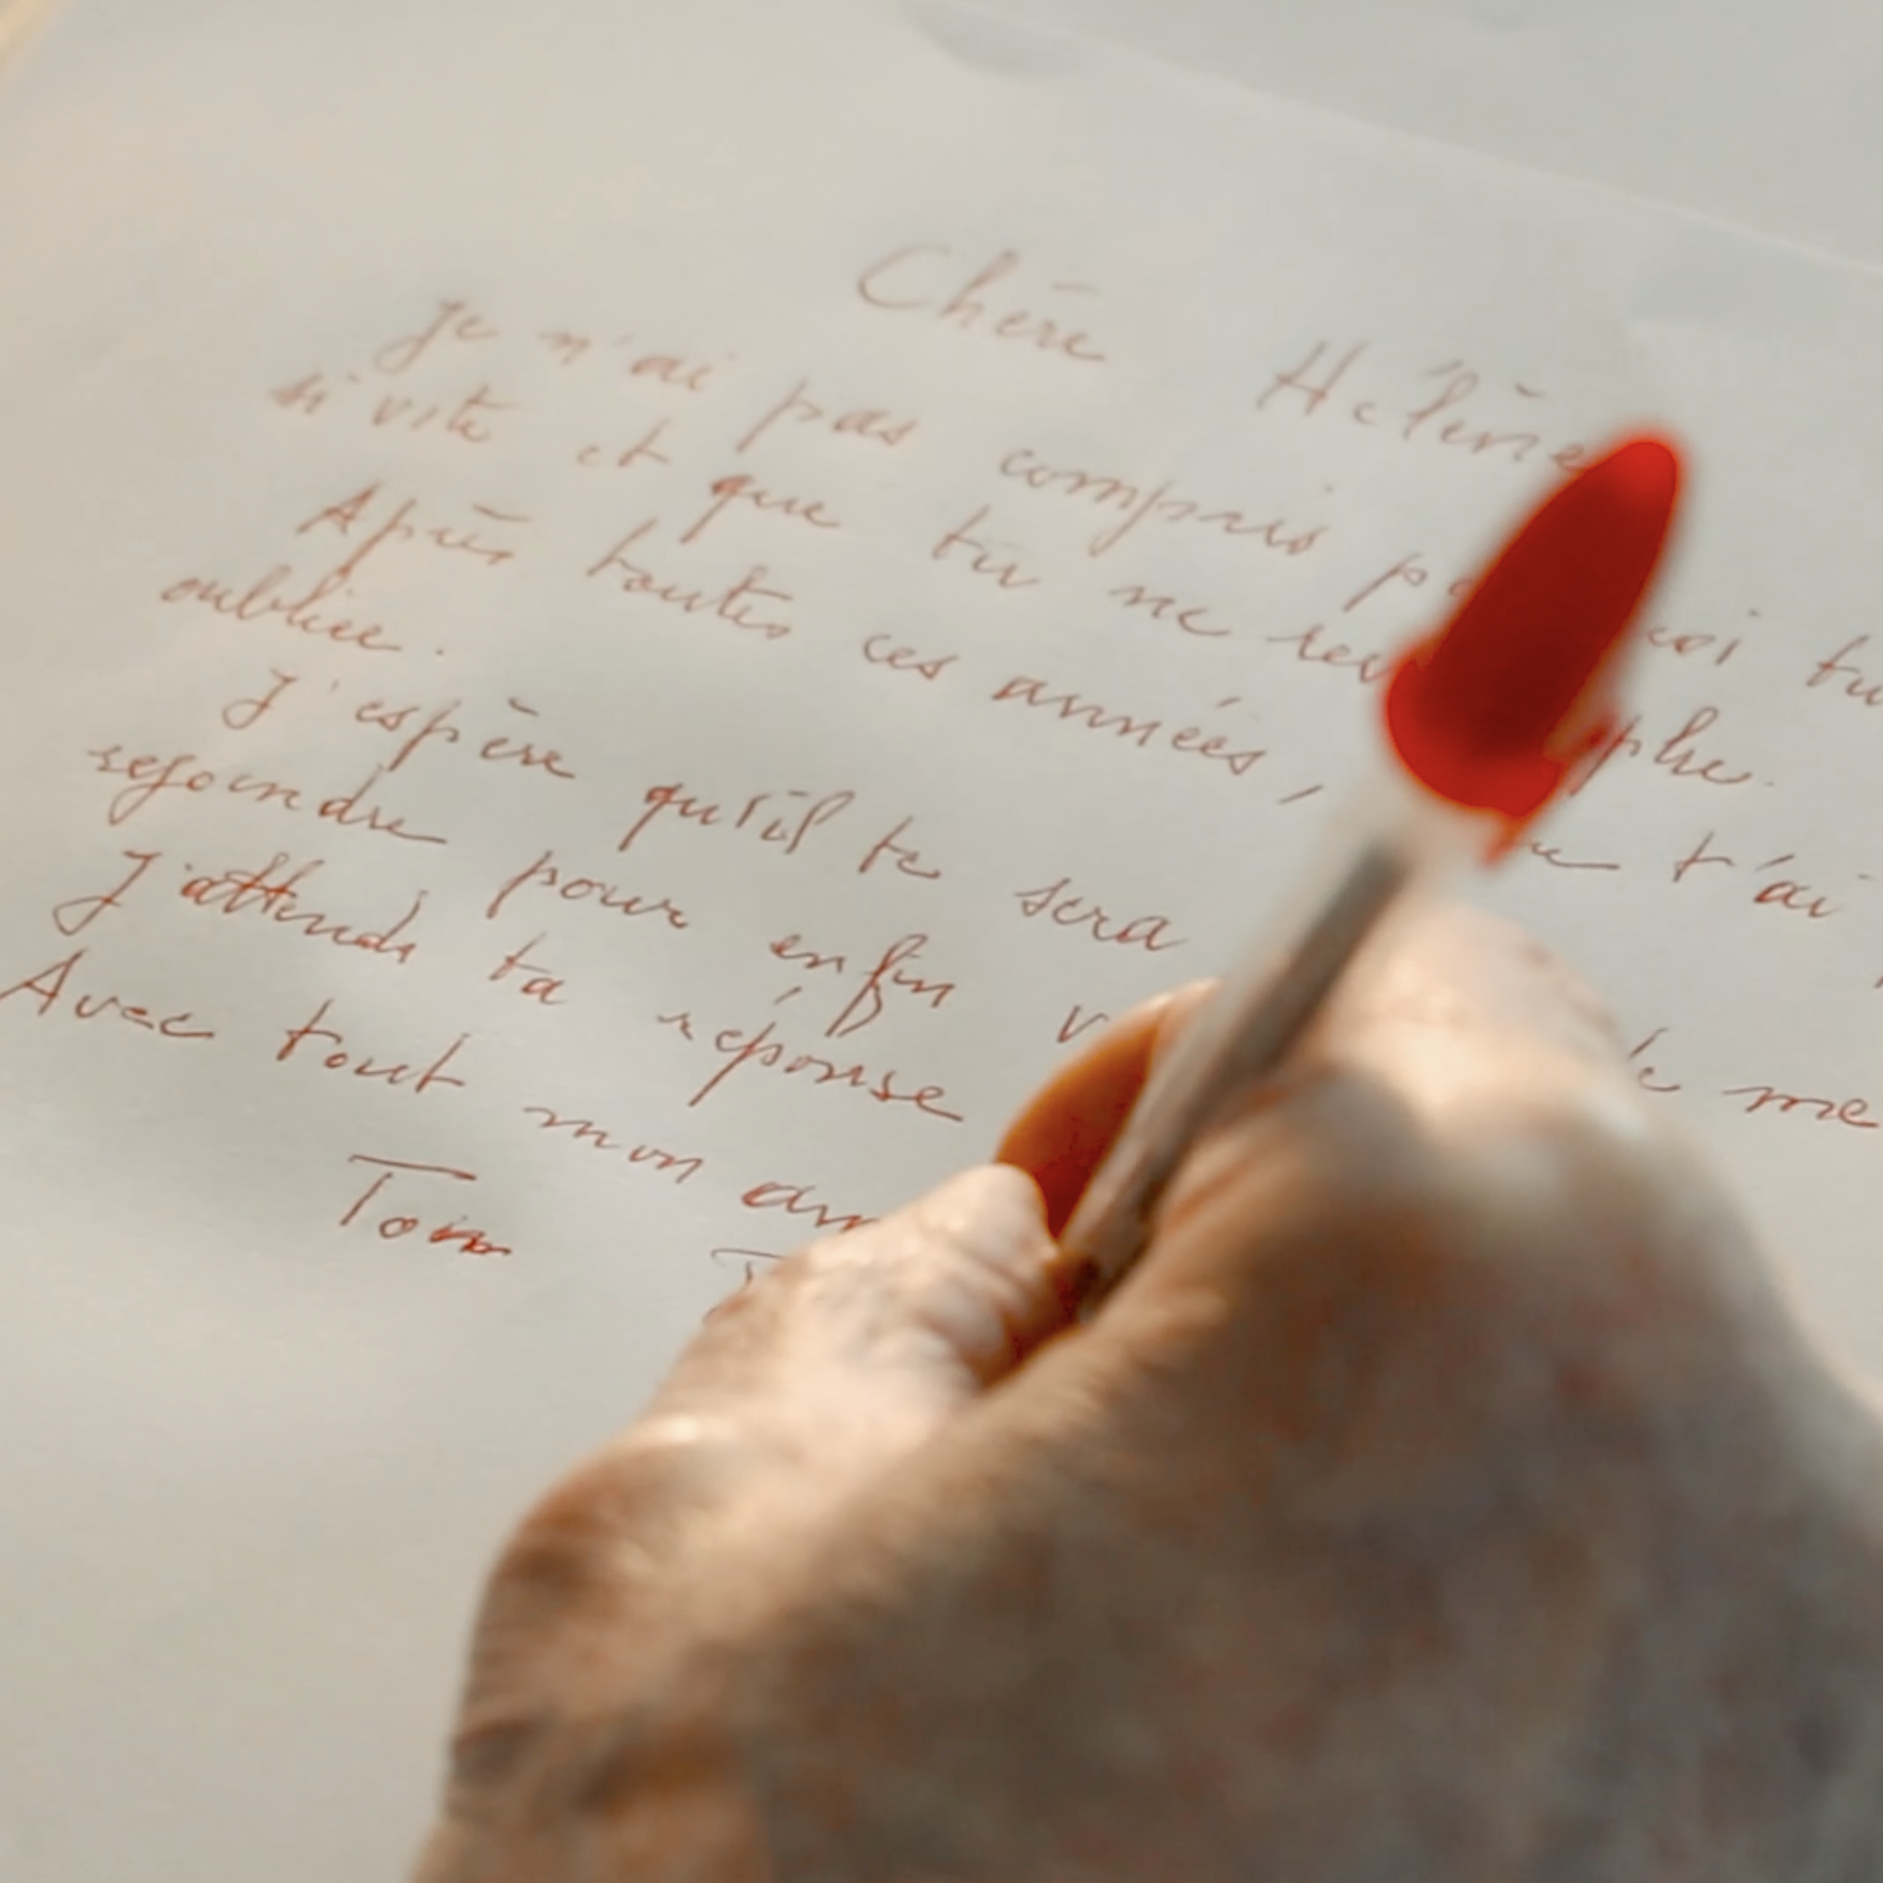 Chère Hélène
Je n'ai pas compris tu
si vite et que tu ne
Après toutes ces années, t'ai
oubliée.
J'espère qu'il te sera
rejoindre pour enfin me
J'attends ta réponse
Avec tout mon
Tom